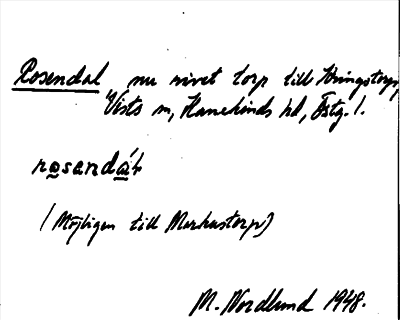 Rosendal nu rivet torp till Kringstorp,
Vists sn, Hanekinds hd, Östg. l.
rosandáɫ
(Möjligen till Markustorp)
M. Nordlund 1948.